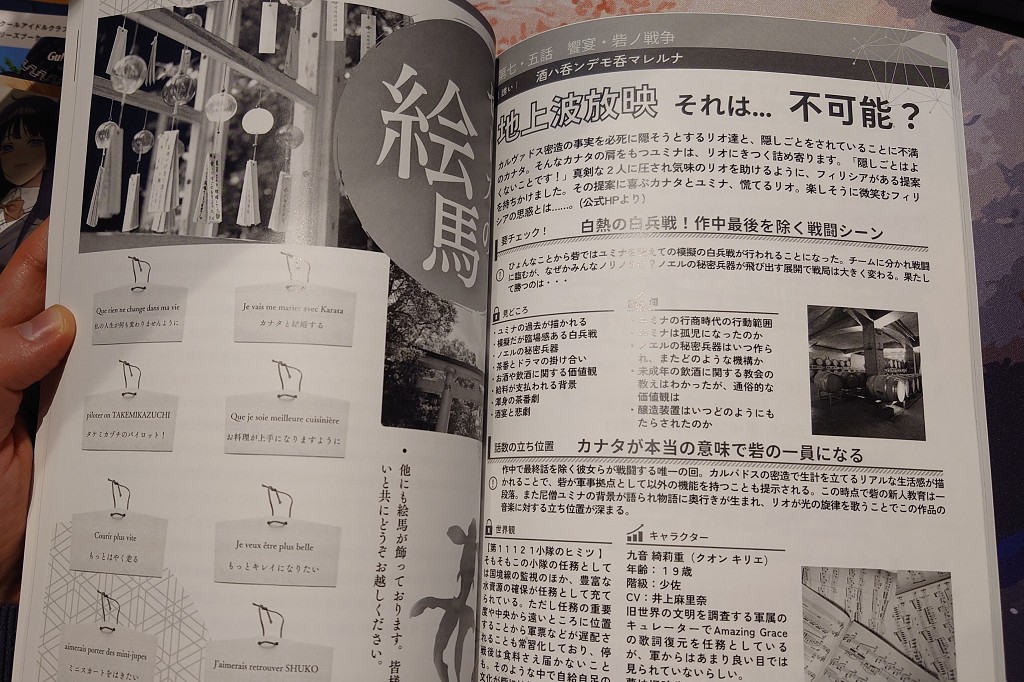 絵馬
Que rien ne change dans ma vie
私の人生が何も変わりませんように
Je vais me marier avec Karata
カナタと結婚する
piloter on TAKEMIKAZUCHI
タケミカヅチのパイロット！
Que je soie meilleure cuisinière
お料理が上手になりますように
Courir plus vite
もっとはやく走る
Je veux être plus belle
もっとキレイになりたい
aimerais porter des mini-jupes
ミニスカートをはきたい
J'aimerais retrouver SHUKO
・他にも絵馬が飾っております。皆様
いと共にどうぞお越しください。
第七・五話 饗宴・砦ノ戦争
酒ハ呑ンデモ呑マレルナ
地上波放映 それは… 不可能？
カルヴァドス密造の事実を必死に隠そうとするリオ達と、隠しごとをされていることに不満
のカナタ。そんなカナタの肩をもつユミナは、リオにきつく詰め寄ります。「隠しごとはよ
くないことです！」真剣な２人に圧され気味のリオを助けるように、フィリシアがある提案
を持ちかけました。その提案に喜ぶカナタとユミナ、慌てるリオ。楽しそうに微笑むフィリ
シアの思惑とは……。(公式HPより)
要チェック！ 白熱の白兵戦！作中最後を除く戦闘シーン
ひょんなことから砦ではユミナを えての模擬の白兵戦が行われることになった。チームに分かれ戦闘
に臨むが、なぜかみんなノリノリ ？ノエルの秘密兵器が飛び出す展開で戦局は大きく変わる。果たし
て勝つのは・・・
見どころ
・ユミナの過去が描かれる
・模擬だが臨場感ある白兵戦
・ノエルの秘密兵器
・茶番とドラマの掛け合い
・お酒や飲酒に関する価値観
・給料が支払われる背景
・渾身の茶番劇
・酒宴と悲劇
・ユミナの行商時代の行動範囲
ミナは孤児になったのか
・ノエルの秘密兵器はいつ作ら
れ、またどのような機構か
・未成年の飲酒に関する教会の
教えはわかったが、通俗的な
価値観は
・醸造装置はいつどのようにも
たらされたのか
話数の立ち位置 カナタが本当の意味で砦の一員になる
作中で最終話を除く彼女らが戦闘する唯一の回。カルバドスの密造で生計を立てるリアルな生活感が描
かれることで、砦が軍事拠点として以外の機能を持つことも提示される。この時点で砦の新人教育は一
段落。また尼僧ユミナの背景が語られ物語に奥行きが生まれ、リオが光の旋律を歌うことでこの作品の
音楽に対する立ち位置が深まる。
世界観
【第１１２１小隊のヒミツ】
そもそもこの小隊の任務として
は国境線の監視のほか、豊富な
水資源の確保が任務として充て
られている。ただし任務の重要
度や中央から遠いところに位置
することから軍票などが遅配さ
れることも常習化しており、停
戦後は食料さえ届かないこと
も。そのような中で自給自足の
キャラクター
九音 綺莉重（クオン キリエ）
年齢：１９歳
階級：少佐
CV：井上麻里奈
旧世界の文明を調査する軍属の
キュレーターでAmazing Grace
の歌詞復元を任務としている
が、軍からはあまり良い目では
見られていないらしい。